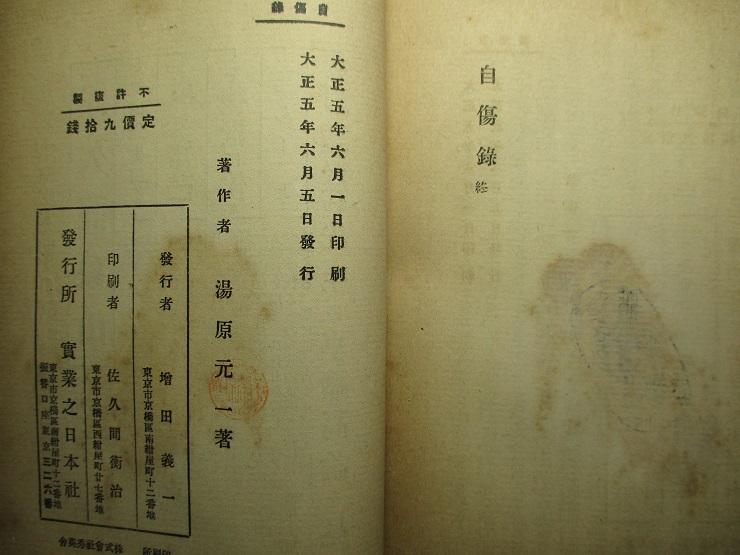 自傷錄 終
自傷錄
大正五年六月一日印刷
大正五年六月五日發行
不許複製
定價九拾錢
著作者 湯原元一著
發行者 增田義一
東京市京橋區南紺屋町十二番地
印刷者 佐久間衡治
東京市京橋區西紺屋町廿七番地
發行所 實業之日本社
東京市京橋區南紺屋町十二番地
振替口座東京三二六番
印刷所 株式會社秀英舍